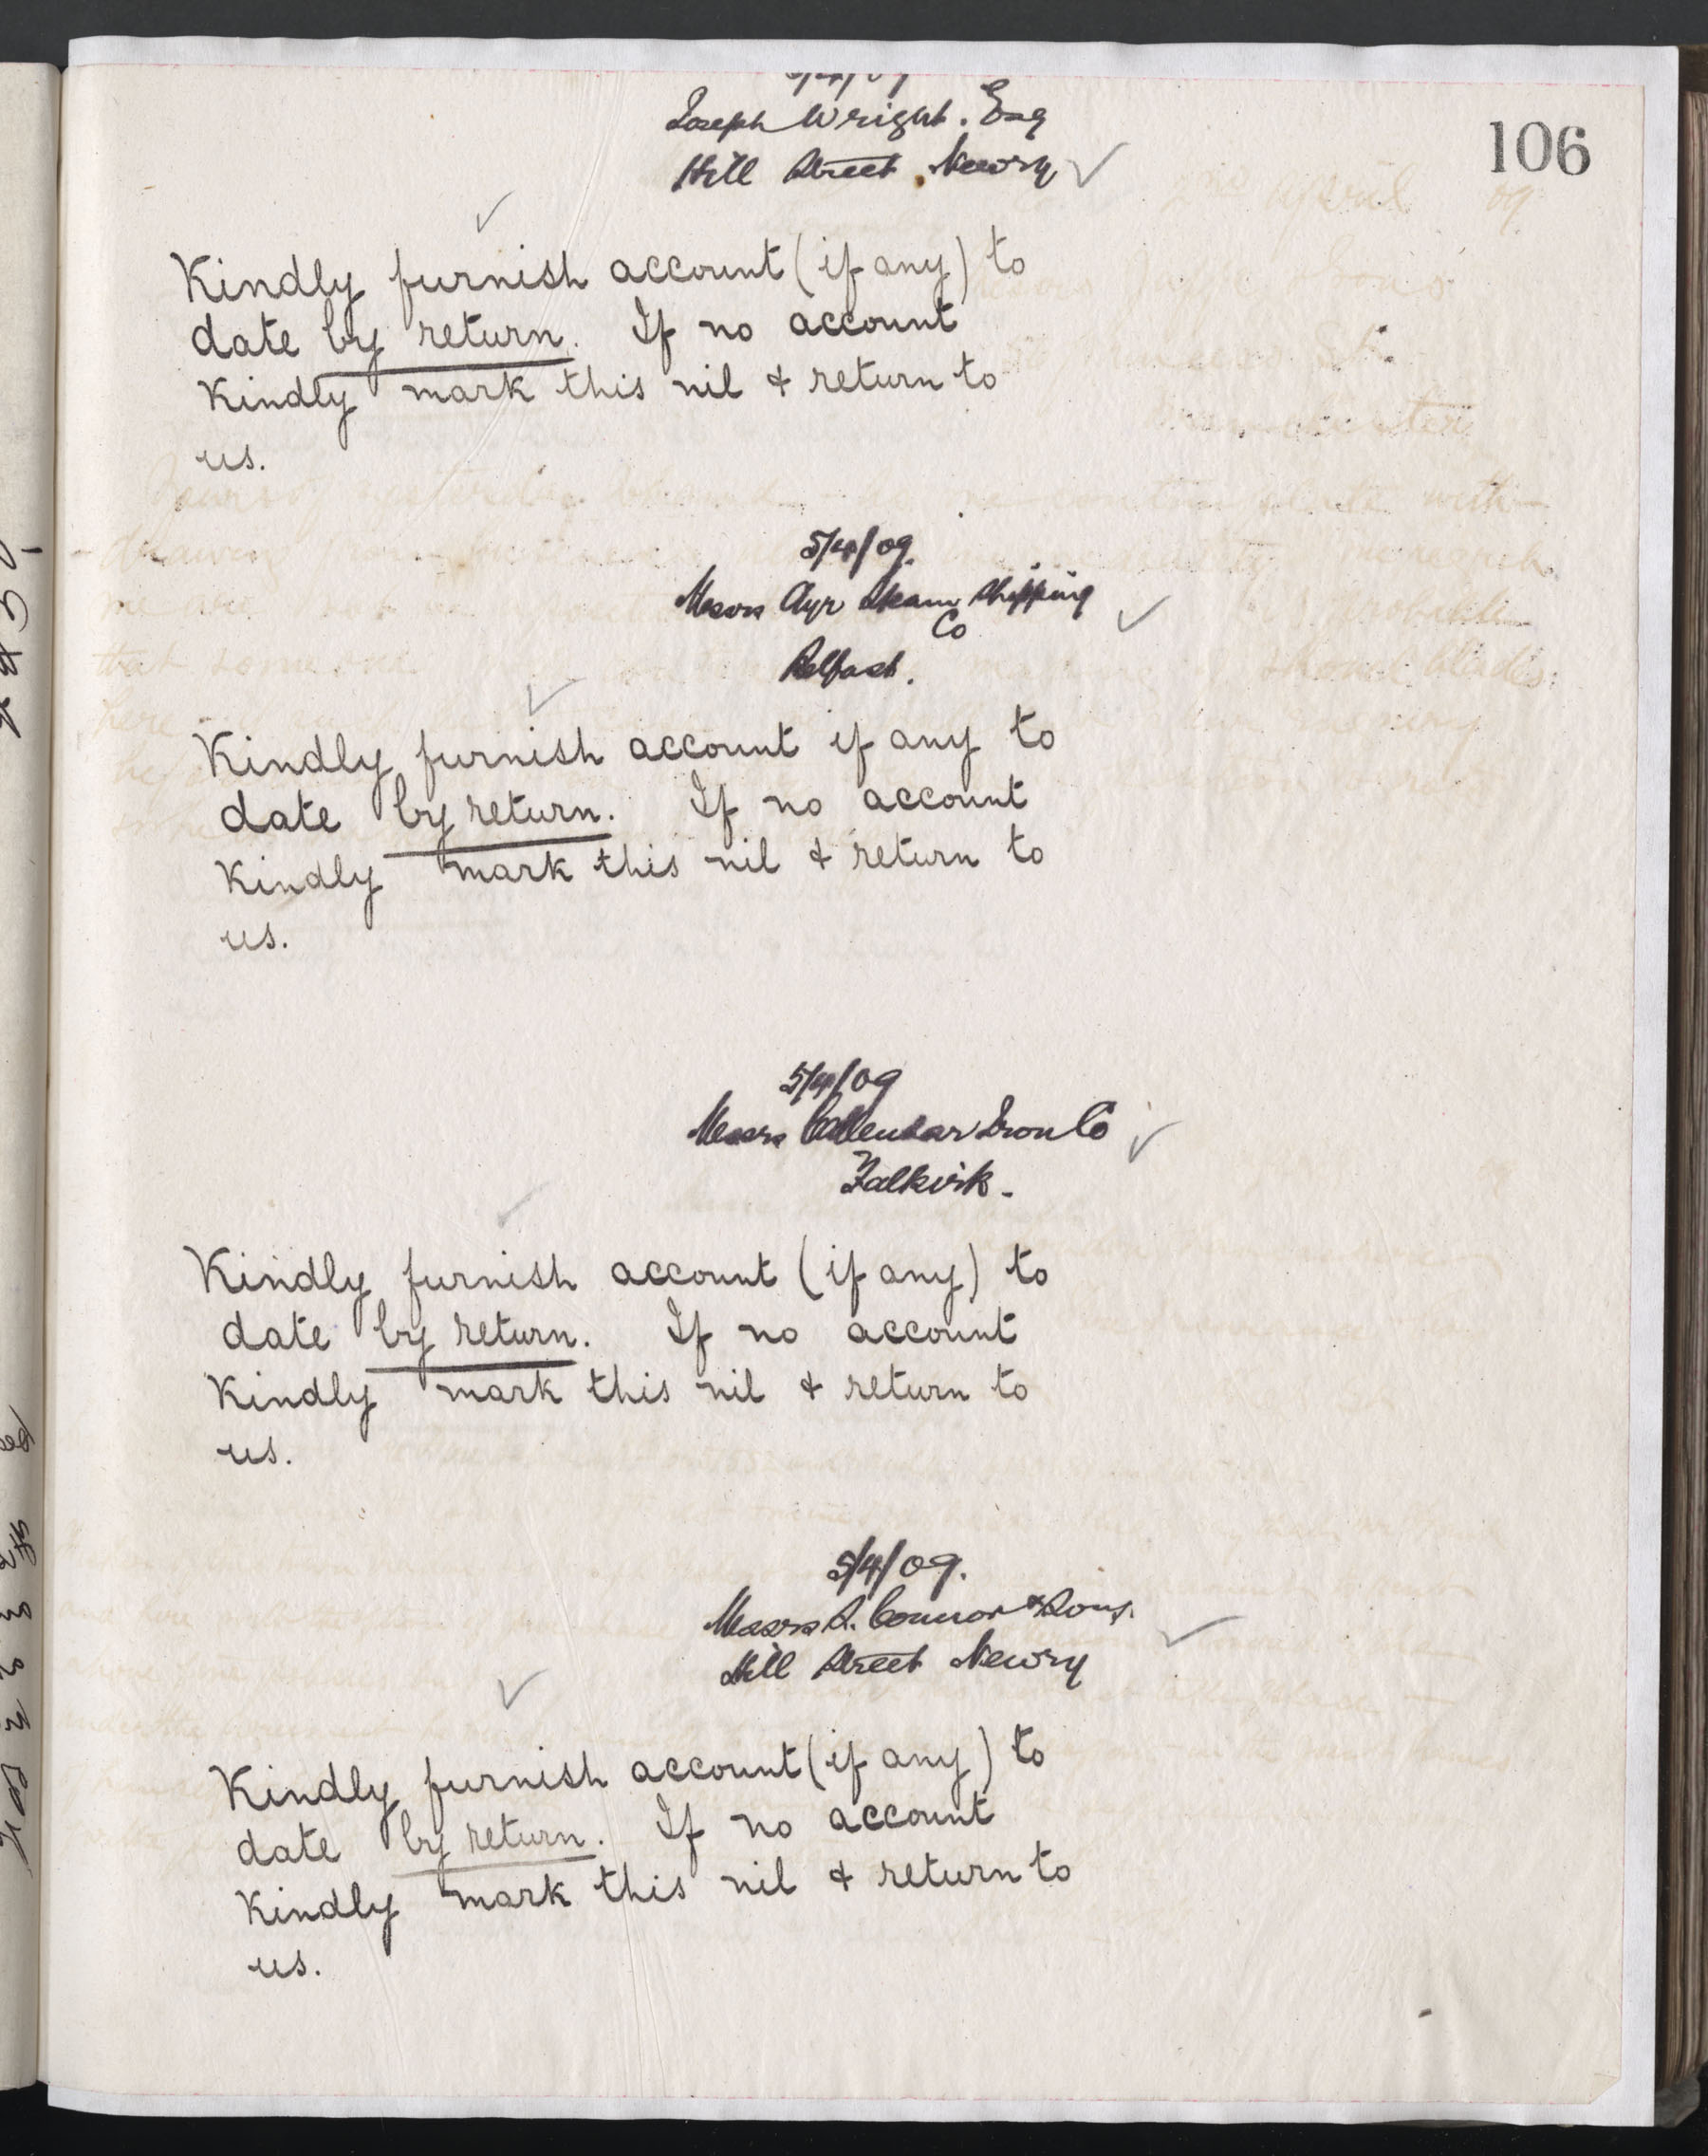 106
Joseph Wright. Esq
Hill Street. Newry
Kindly furnish account (if any) to
date by return. If no account
Kindly mark this nil & return to
us.
5/4/09.
Messrs Ayr Steam Shipping
Co
Belfast.
Kindly furnish account if any to
date by return. If no account
Kindly mark this nil & return to
us.
5/4/09
Messrs Callendar Iron Co
Falkirk.
Kindly furnish account (if any) to
date by return. If no account
Kindly mark this nil & return to
us.
5/4/09.
Messrs S. Connor & Sons.
Hill Street Newry
Kindly furnish account (if any) to
date by return. If no account
Kindly mark this nil & return to
us.